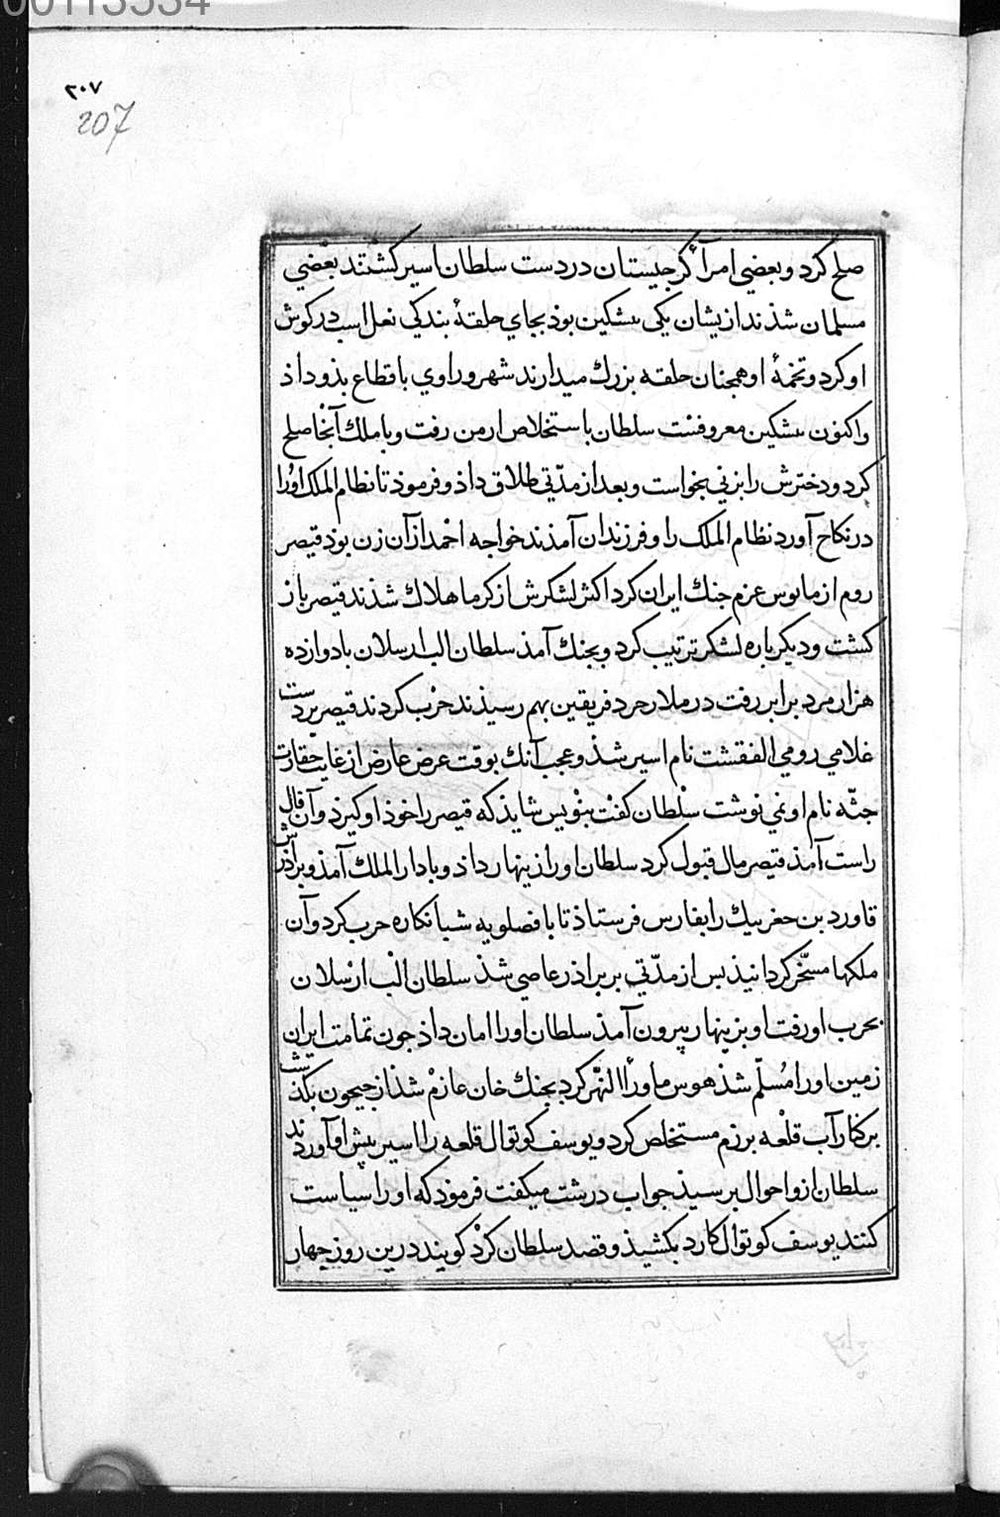 00113534
۲۰۷
207
صلح کرد و بعضی امرآء کرجیستان در دست سلطان اسیر کشتند بعضی
مسلمان شذند ازیشان یکی بیشکین بوذ بجای حلقۀ بندکی نعل اسب در کوش
او کرد و تخمۀ او همچنان حلقه بزرك میدارند شهر وراوی باقطاع بذو داذ
واکنون بیشکین معروفست سلطان باستخلاص ارمن رفت وبا ملك آنجا صلح
کرد ودخترش را بزنی بخواست وبعد از مدّتی طلاق داذ وفرموذ تا نظام الملك اورا
در نکاح آورد نظام الملك را وفرزندان آمذند خواجه احمد از آن زن بوذ قیصر
روم ارمانوس عزم جنك ایران کرد اکثر لشکرش از کرما هلاك شذند قیصر باز
کشت ودیکر باره لشکر ترتیب کرد وبجنك آمذ سلطان الب ارسلان با دوازده
هزار مرد برابر رفت در ملازجرد فریقین بهم رسیذند حرب کردند قیصر بر دست
غلامی رومی الفقشت نام اسیر شذ وعجب آنك بوقت عرض عارض از غایت حقارت
جثّه نام او نمی نوشت سلطان کفت بنویس شایذ که قیصر را خوذ او کیرذ وآن فال
راست آمذ قیصر مال قبول کرد سلطان اورا زینهار داذ وبا دار الملك آمذ وبراذرش
قاورد بن جغربیك را بفارس فرستاذ تا با فضلویه شبانکاره حرب کرد وآن
ملکها مسخّر کردانیذ بس از مدّتی بر براذر عاصی شذ سلطان الب ارسلان
بحرب او رفت او بزینهار بیرون آمذ سلطان اورا امان داذ جون تمامت ایران
زمین اورا مُسلّم شذ هوس ماورآء النهّر کرد بجنك خان عازم شذ از جیحون بکذشت
بر کنار آب قلعه برزم مستخلص کرد ویوسف کوتوال قلعه را اسیر بیش او آوردند
سلطان ازو احوال برسیذ جواب درشت میکفت فرموذ که اورا سیاست
کنند یوسف کوتوال کارد بکشیذ وقصد سلطان کرد کویند درین روز چهار